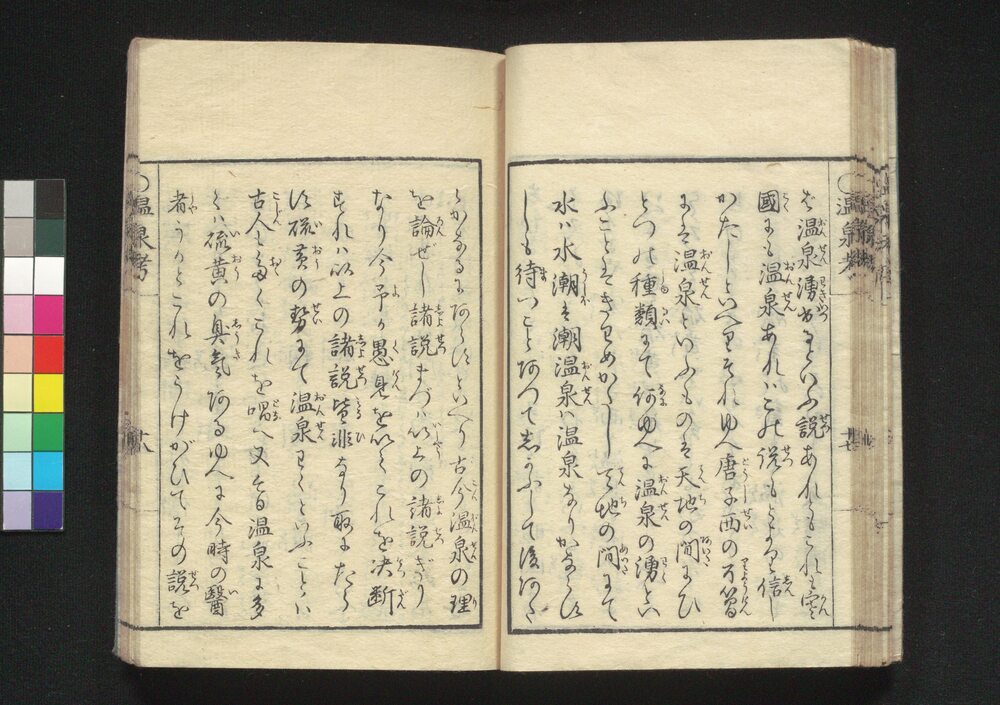 ば温泉湧出るといふ説あれどもこれも寒
国にも温泉あれハこの説もとより信じ
かたしといへりそれゆへ唐子西の
にも温泉といふものを天地の間にひ
とつの種類にて何ゆへに温泉の湧とい
ふことをきわめかたし天地の間にて
水ハ水潮は潮温泉ハ温泉なりかならず
しも待つことあつて
らかなるにあらずといへり古今温泉の理
を論ぜし諸説まづハ以上の諸説ぎり
なり今予が愚見を以てこれを決断
すれハ以上の諸説皆非なり取にたら
ず硫黄の勢にて温泉わくといふことハ
古人も多くこれを唱へ又その温泉に多
くハ硫黄の臭気あるゆへに今時の医
者うかとこれをうけがひてその説を
温泉考
温泉考
十八